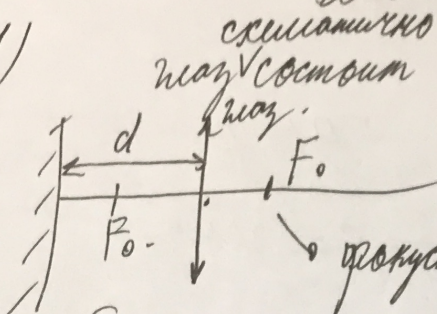 схематично
глаз состоит
глаз.
d
F₀
F₀.
фокус